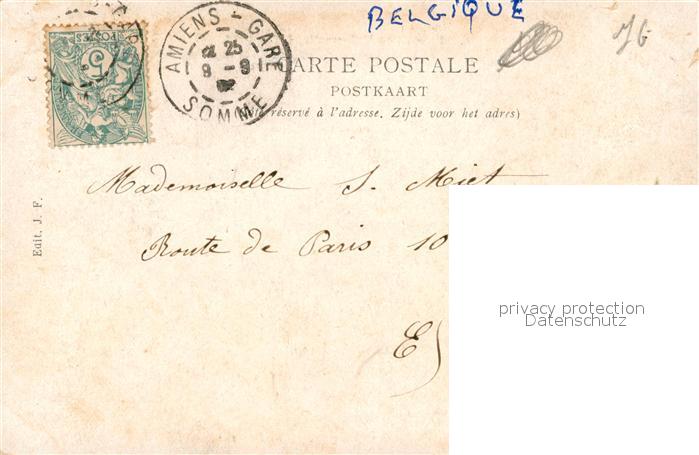 BELGIQUE
AMIENS - GARE
25
9 - 9
SOMME
5
POSTES
CARTE POSTALE
POSTKAART
réservé à l'adresse. Zijde voor het adres)
Mademoiselle S. Miet
Route de Paris 10
Edit. J. F.
privacy protection
Datenschutz